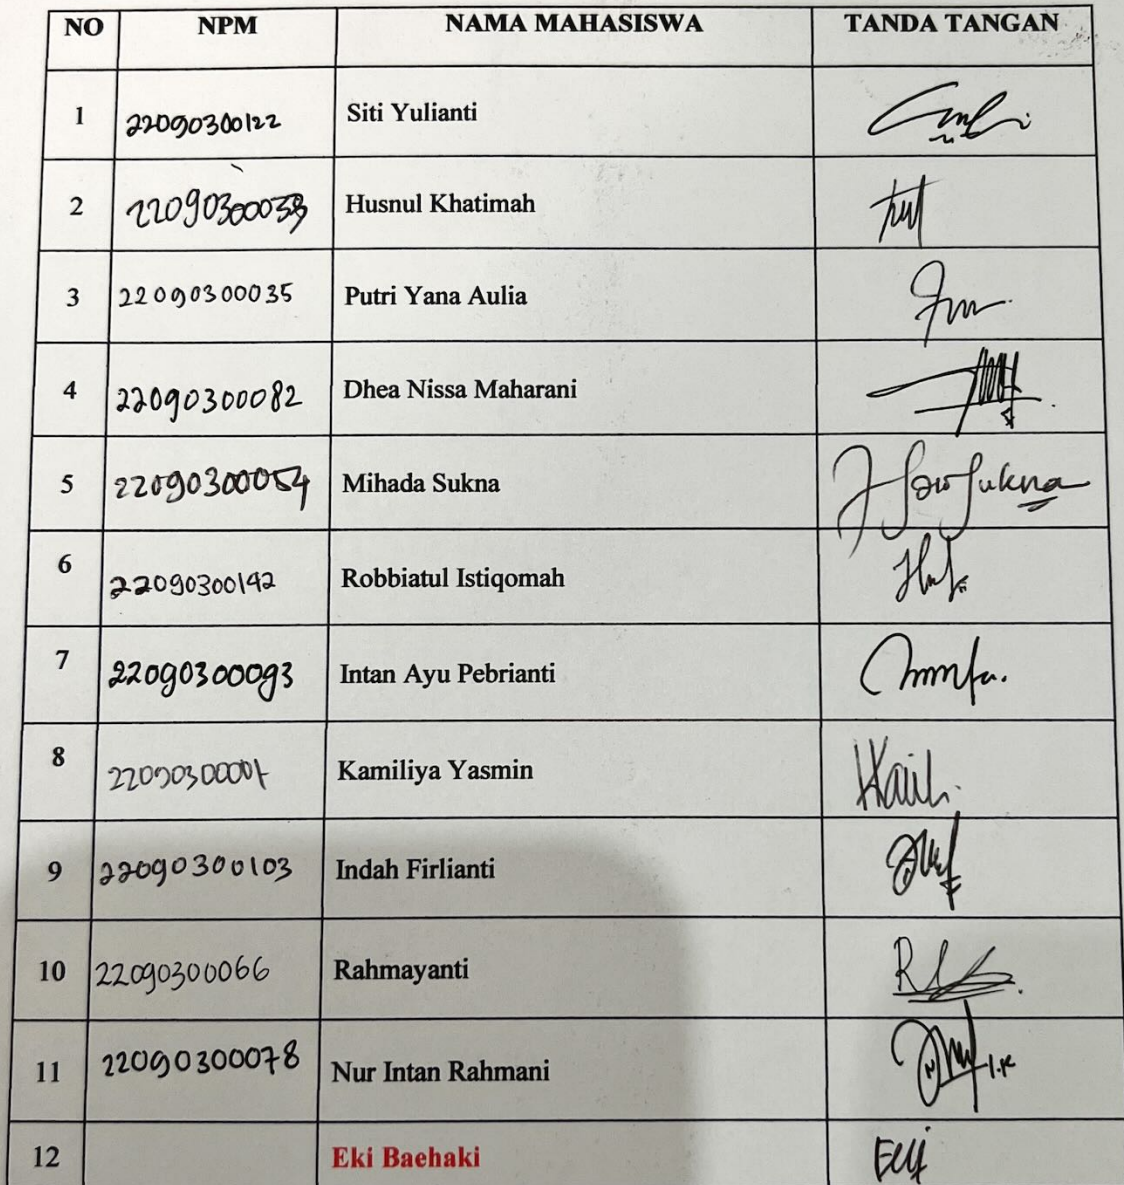 NO NPM NAMA MAHASISWA TANDA TANGAN
1 22090300122 Siti Yulianti
2 Husnul Khatimah
3 22090300035 Putri Yana Aulia
4 22090300082 Dhea Nissa Maharani
5 22090300054 Mihada Sukna
6 22090300142 Robbiatul Istiqomah
7 22090300093 Intan Ayu Pebrianti
8 Kamiliya Yasmin
9 22090300103 Indah Firlianti
10 22090300066 Rahmayanti
11 22090300078 Nur Intan Rahmani
12 Eki Baehaki